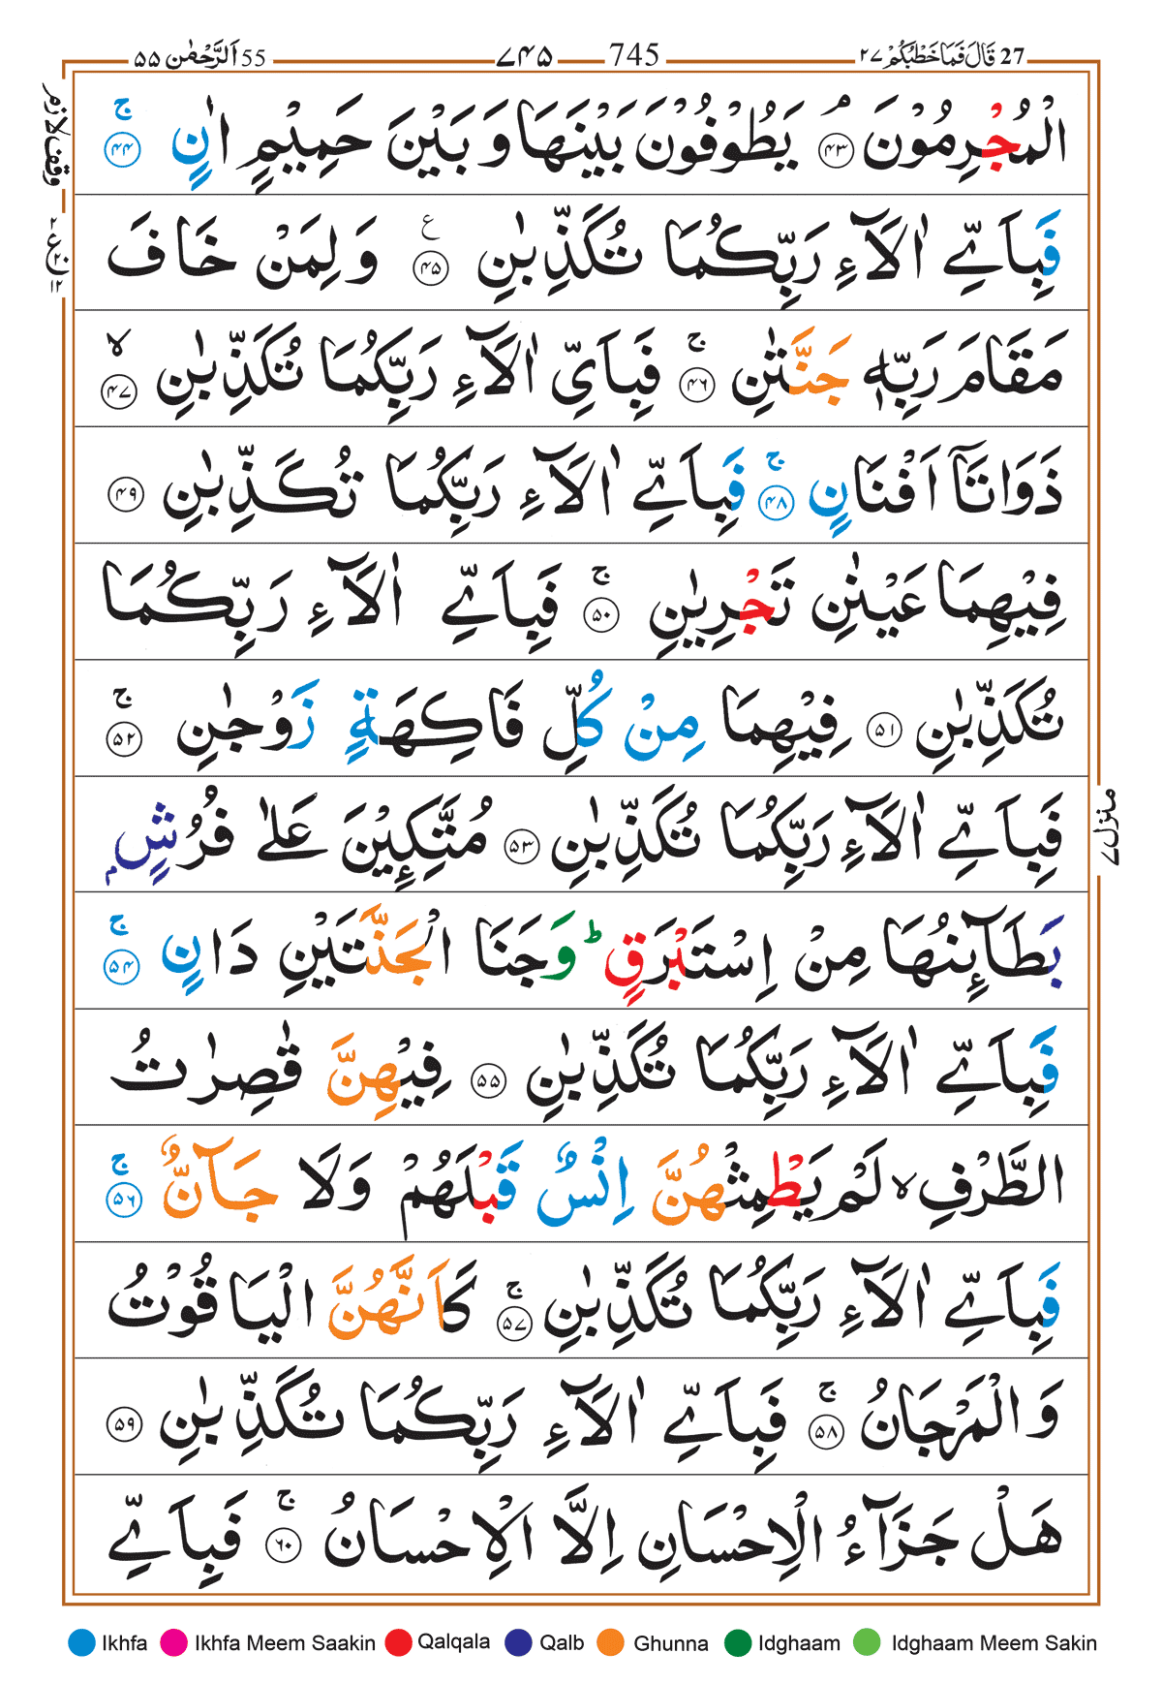 27 قَالَ فَمَا خَطْبُكُمْ ۲۷ 745 ۷۴۵ 55 اَلرَّحْمٰن ۵۵
الْمُجْرِمُوْنَ ۘ ﴿۴۳﴾ يَطُوْفُوْنَ بَيْنَهَا وَ بَيْنَ حَمِيْمٍ اٰنٍ ۚ ﴿۴۴﴾
وقف لازم
فَبِاَيِّ اٰلَآءِ رَبِّكُمَا تُكَذِّبٰنِ ﴿۴۵﴾ ع وَ لِمَنْ خَافَ
مَقَامَ رَبِّهٖ جَنَّتٰنِ ۚ ﴿۴۶﴾ فَبِاَيِّ اٰلَآءِ رَبِّكُمَا تُكَذِّبٰنِ ۙ ﴿۴۷﴾
ذَوَاتَاۤ اَفْنَانٍ ۚ ﴿۴۸﴾ فَبِاَيِّ اٰلَآءِ رَبِّكُمَا تُكَذِّبٰنِ ﴿۴۹﴾
فِيْهِمَا عَيْنٰنِ تَجْرِيٰنِ ۚ ﴿۵۰﴾ فَبِاَيِّ اٰلَآءِ رَبِّكُمَا
تُكَذِّبٰنِ ﴿۵۱﴾ فِيْهِمَا مِنْ كُلِّ فَاكِهَةٍ زَوْجٰنِ ۚ ﴿۵۲﴾
فَبِاَيِّ اٰلَآءِ رَبِّكُمَا تُكَذِّبٰنِ ﴿۵۳﴾ مُتَّكِـِٕيْنَ عَلٰى فُرُشٍۭ
منزل ۷
بَطَآىِٕنُهَا مِنْ اِسْتَبْرَقٍ ؕ وَ جَنَا الْجَنَّتَيْنِ دَانٍ ۚ ﴿۵۴﴾
فَبِاَيِّ اٰلَآءِ رَبِّكُمَا تُكَذِّبٰنِ ﴿۵۵﴾ فِيْهِنَّ قٰصِرٰتُ
الطَّرْفِ ۙ لَمْ يَطْمِثْهُنَّ اِنْسٌ قَبْلَهُمْ وَ لَا جَآنٌّ ۚ ﴿۵۶﴾
فَبِاَيِّ اٰلَآءِ رَبِّكُمَا تُكَذِّبٰنِ ۚ ﴿۵۷﴾ كَاَنَّهُنَّ الْيَاقُوْتُ
وَ الْمَرْجَانُ ۚ ﴿۵۸﴾ فَبِاَيِّ اٰلَآءِ رَبِّكُمَا تُكَذِّبٰنِ ﴿۵۹﴾
هَلْ جَزَآءُ الْاِحْسَانِ اِلَّا الْاِحْسَانُ ۚ ﴿۶۰﴾ فَبِاَيِّ
Ikhfa Ikhfa Meem Saakin Qalqala Qalb Ghunna Idghaam Idghaam Meem Sakin